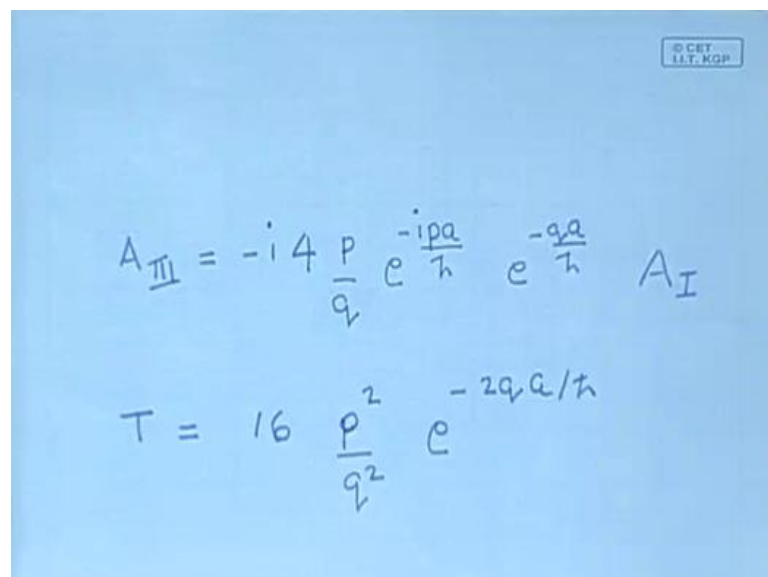 © CET
I.I.T. KGP
A_III = -i 4 p/q e^(-ipa/ħ) e^(-qa/ħ) A_I
T = 16 p²/q² e^(-2qa/ħ)